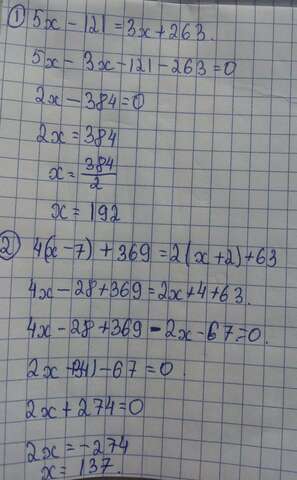 1) 5x - 121 = 3x + 263.
5x - 3x - 121 - 263 = 0
2x - 384 = 0
2x = 384
x = 384/2
x = 192
2) 4(x - 7) + 369 = 2(x + 2) + 63
4x - 28 + 369 = 2x + 4 + 63.
4x - 28 + 369 - 2x - 67 = 0.
2x + 341 - 67 = 0.
2x + 274 = 0
2x = -274
x = 137.